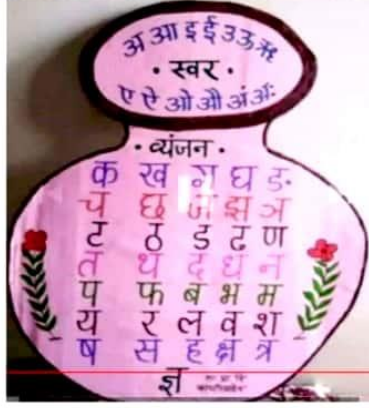 अ आ इ ई उ ऊ ऋ
• स्वर •
ए ऐ ओ औ अं अः
• व्यंजन •
क ख ग घ ङ
च छ ज झ ञ
ट ठ ड ढ ण
त थ द ध न
प फ ब भ म
य र ल व श
ष स ह क्ष त्र
ज्ञ